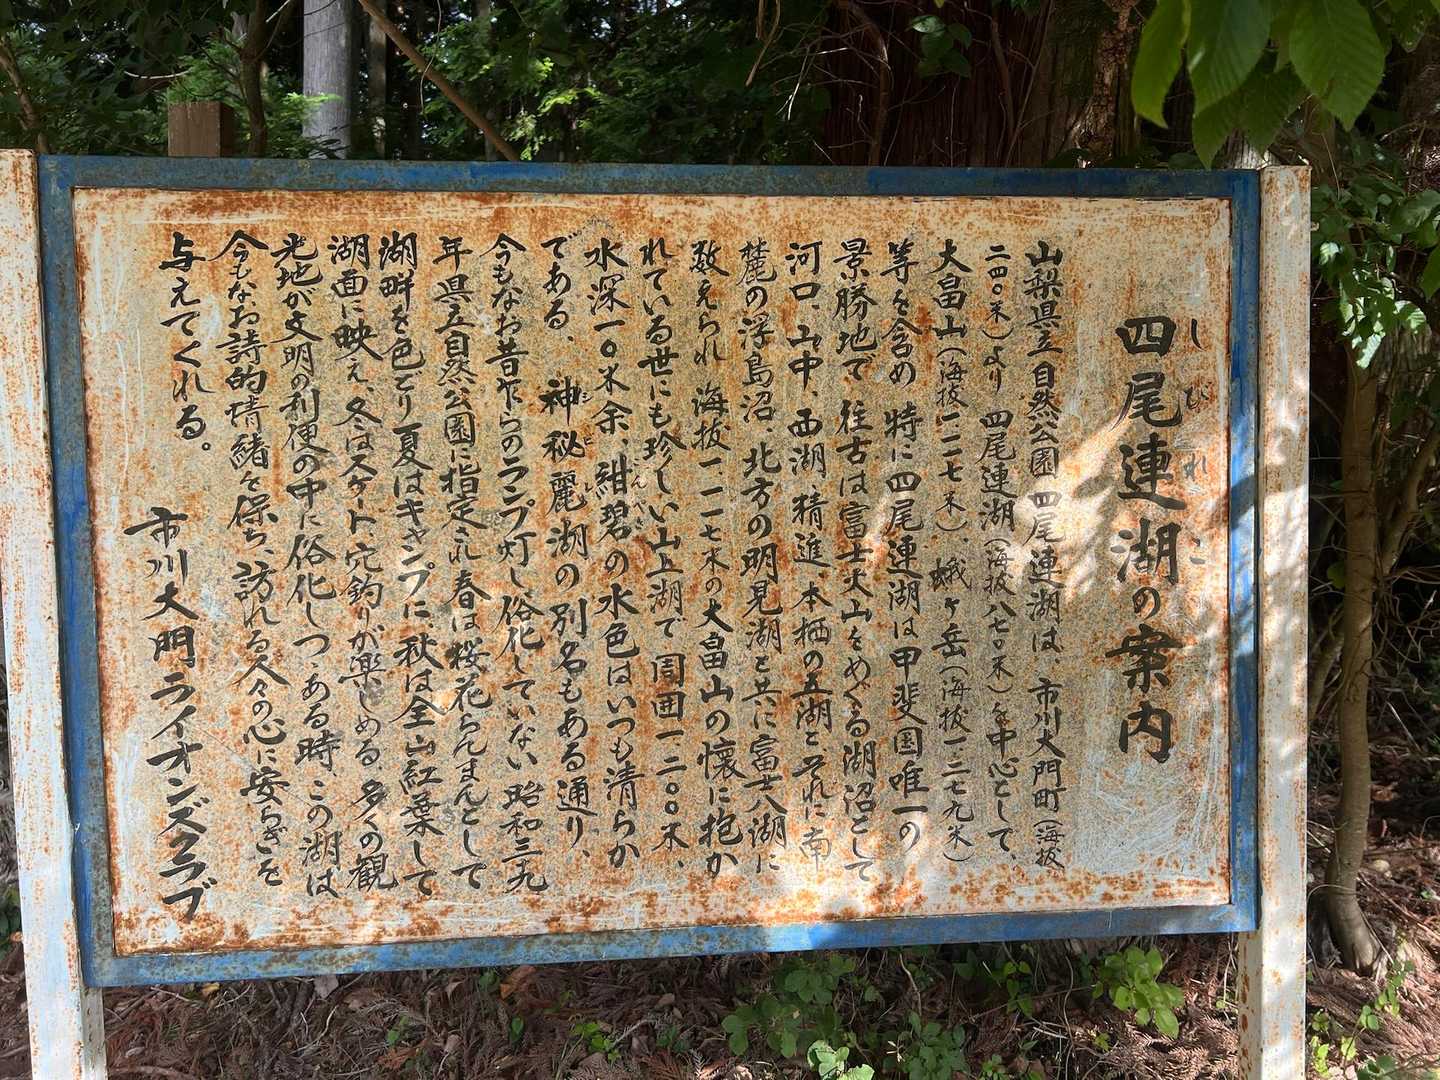 四尾連湖の案内
しびれこ
山梨県立自然公園四尾連湖は、市川大門町(海抜
二四〇米)より四尾連湖(海抜八七〇米)を中心として、
大畠山(海抜一一一七米)、蛾ヶ岳(海抜一二七九米)
等を含め特に四尾連湖は甲斐国唯一の
景勝地で往古は富士火山をめぐる湖沼として
河口、山中、西湖、精進、本栖の五湖とそれに南
麓の浮島沼、北方の明見湖と共に富士八湖に
数えられ海抜一一一七米の大畠山の懐に抱か
れている世にも珍しい山上湖で周囲一、二〇〇米、
水深一〇米余、紺碧の水色はいつも清らか
である、神秘麗湖の別名もある通り、
今もなお昔乍らのランプ灯し、俗化していない昭和三九
年県立自然公園に指定され春は桜花らんまんとして
湖畔を色どり夏はキャンプに秋は全山紅葉して
湖面に映え、冬はスケート、穴釣りが楽しめる、多くの観
光地が文明の利便の中に俗化しつゝある時、この湖は
今もなお詩的情緒を保ち、訪れる人々の心に安らぎを
与えてくれる。
市川大門ライオンズクラブ